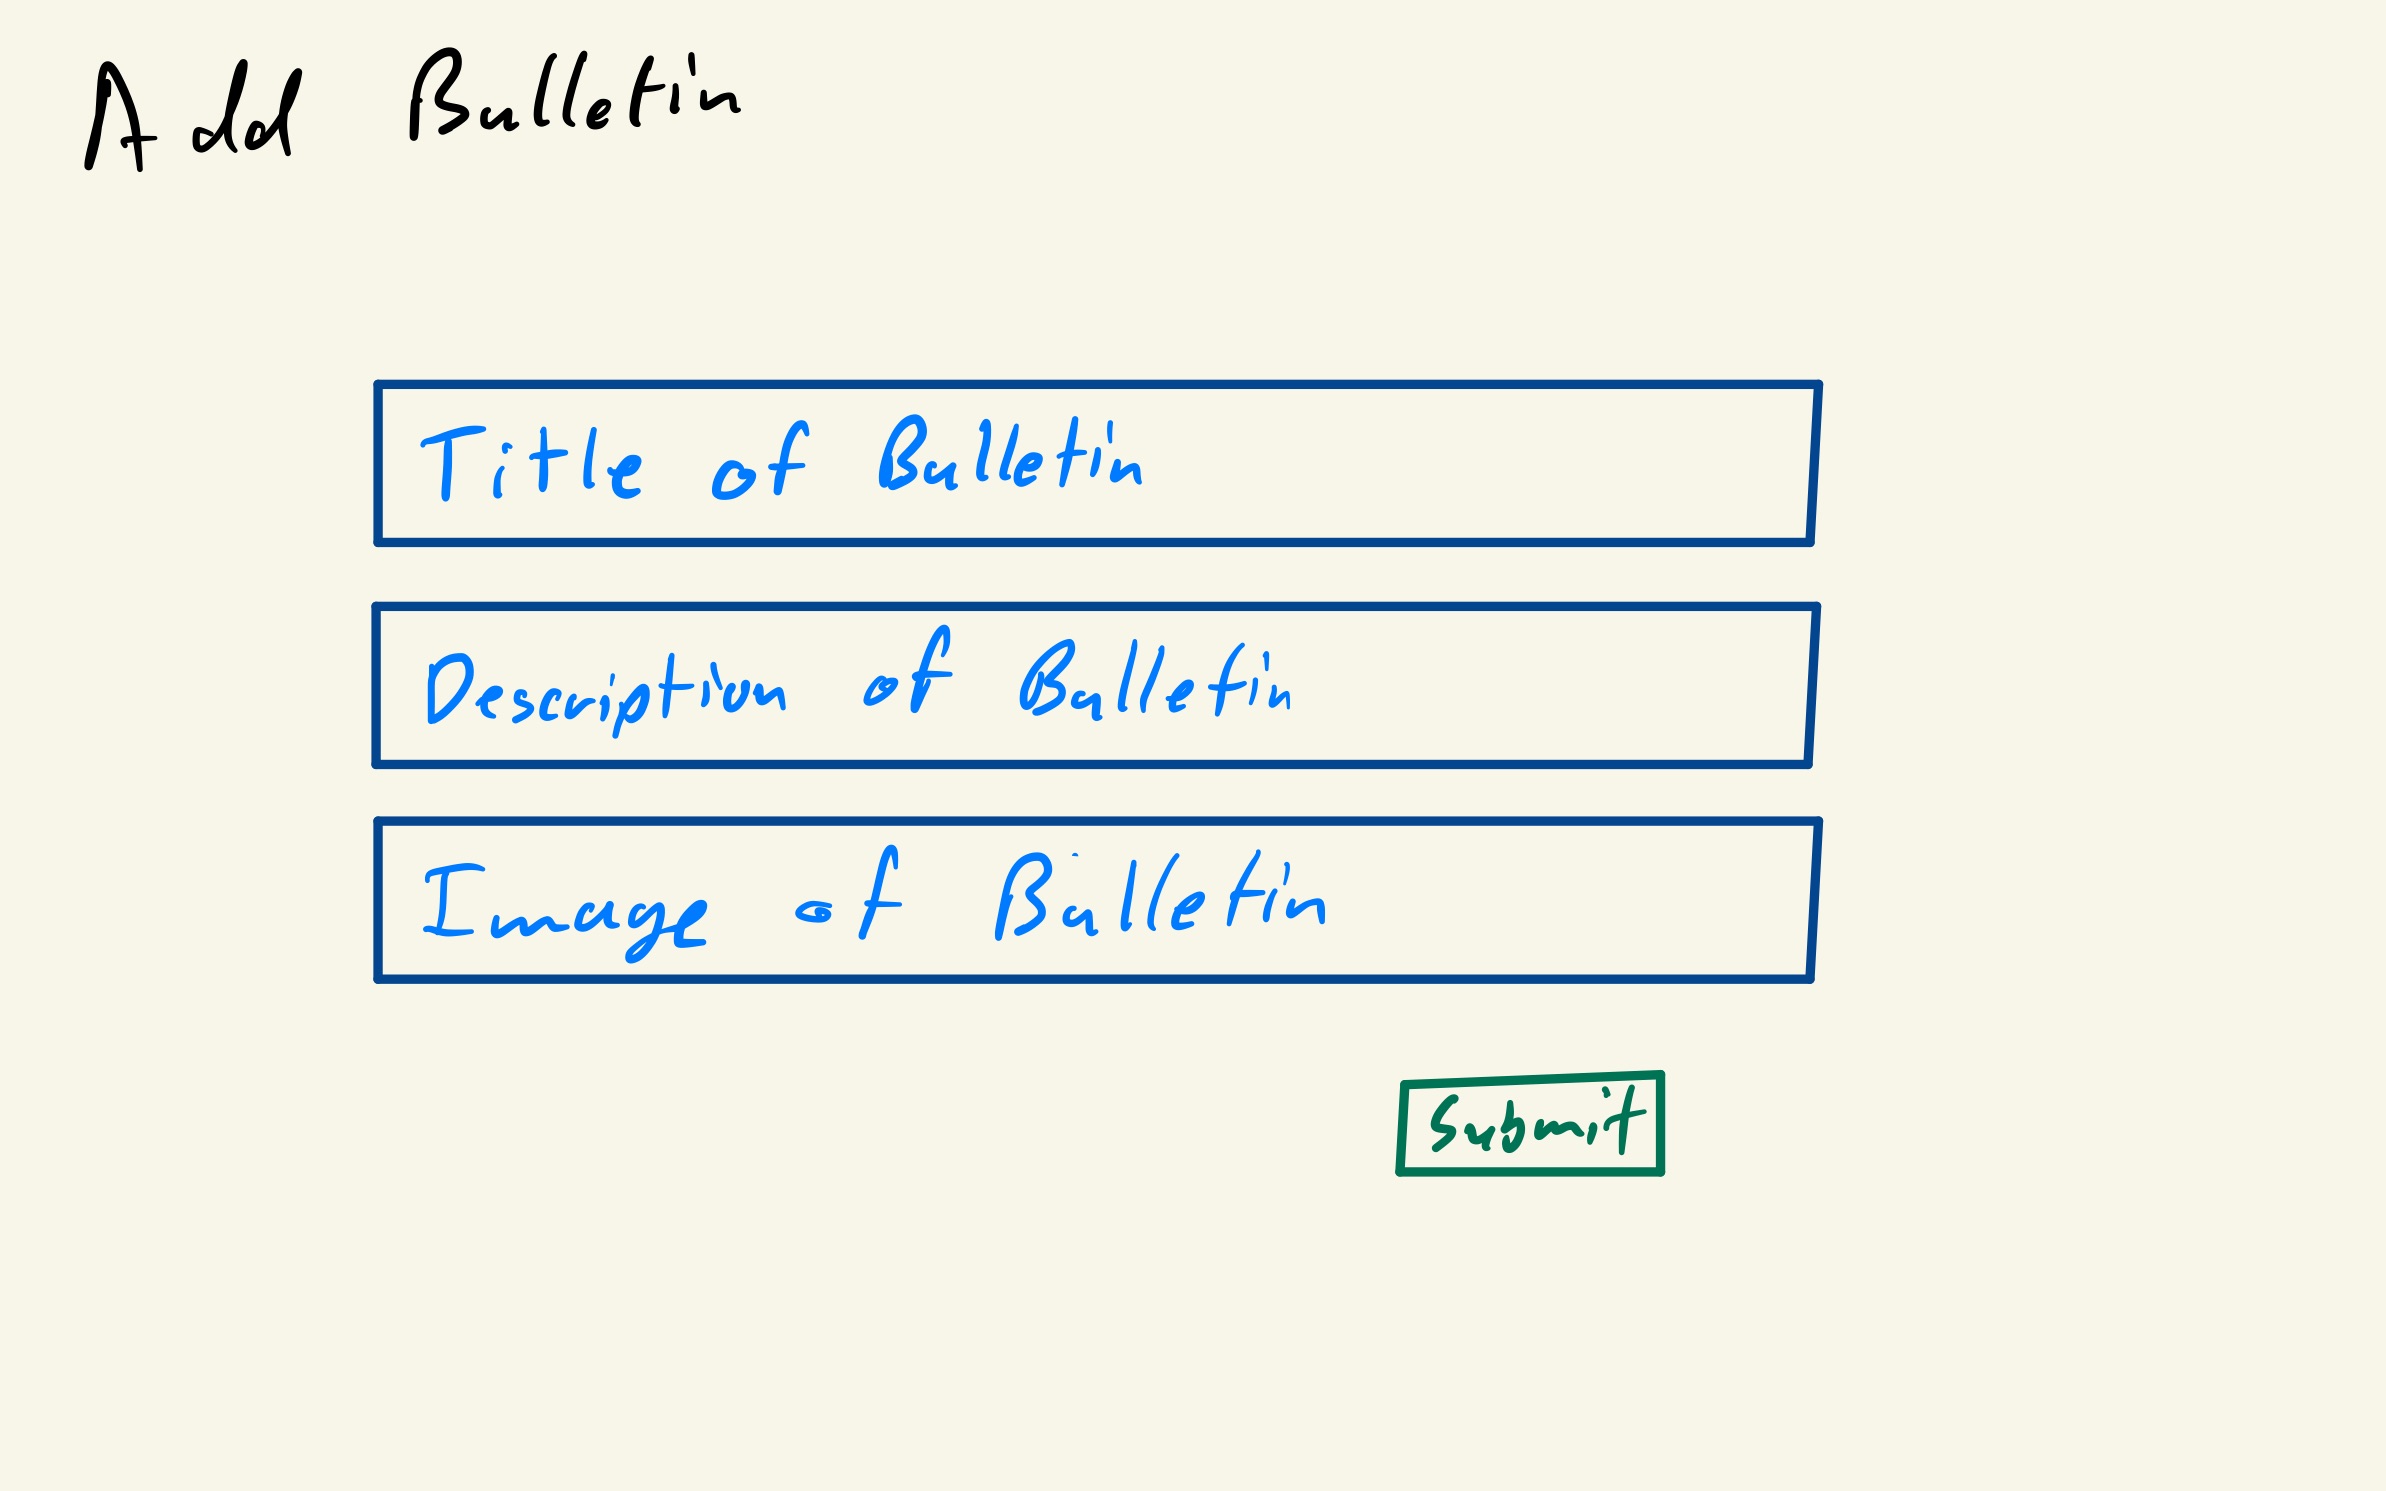 Add Bulletin
Title of Bulletin
Description of Bulletin
Image of Bulletin
Submit